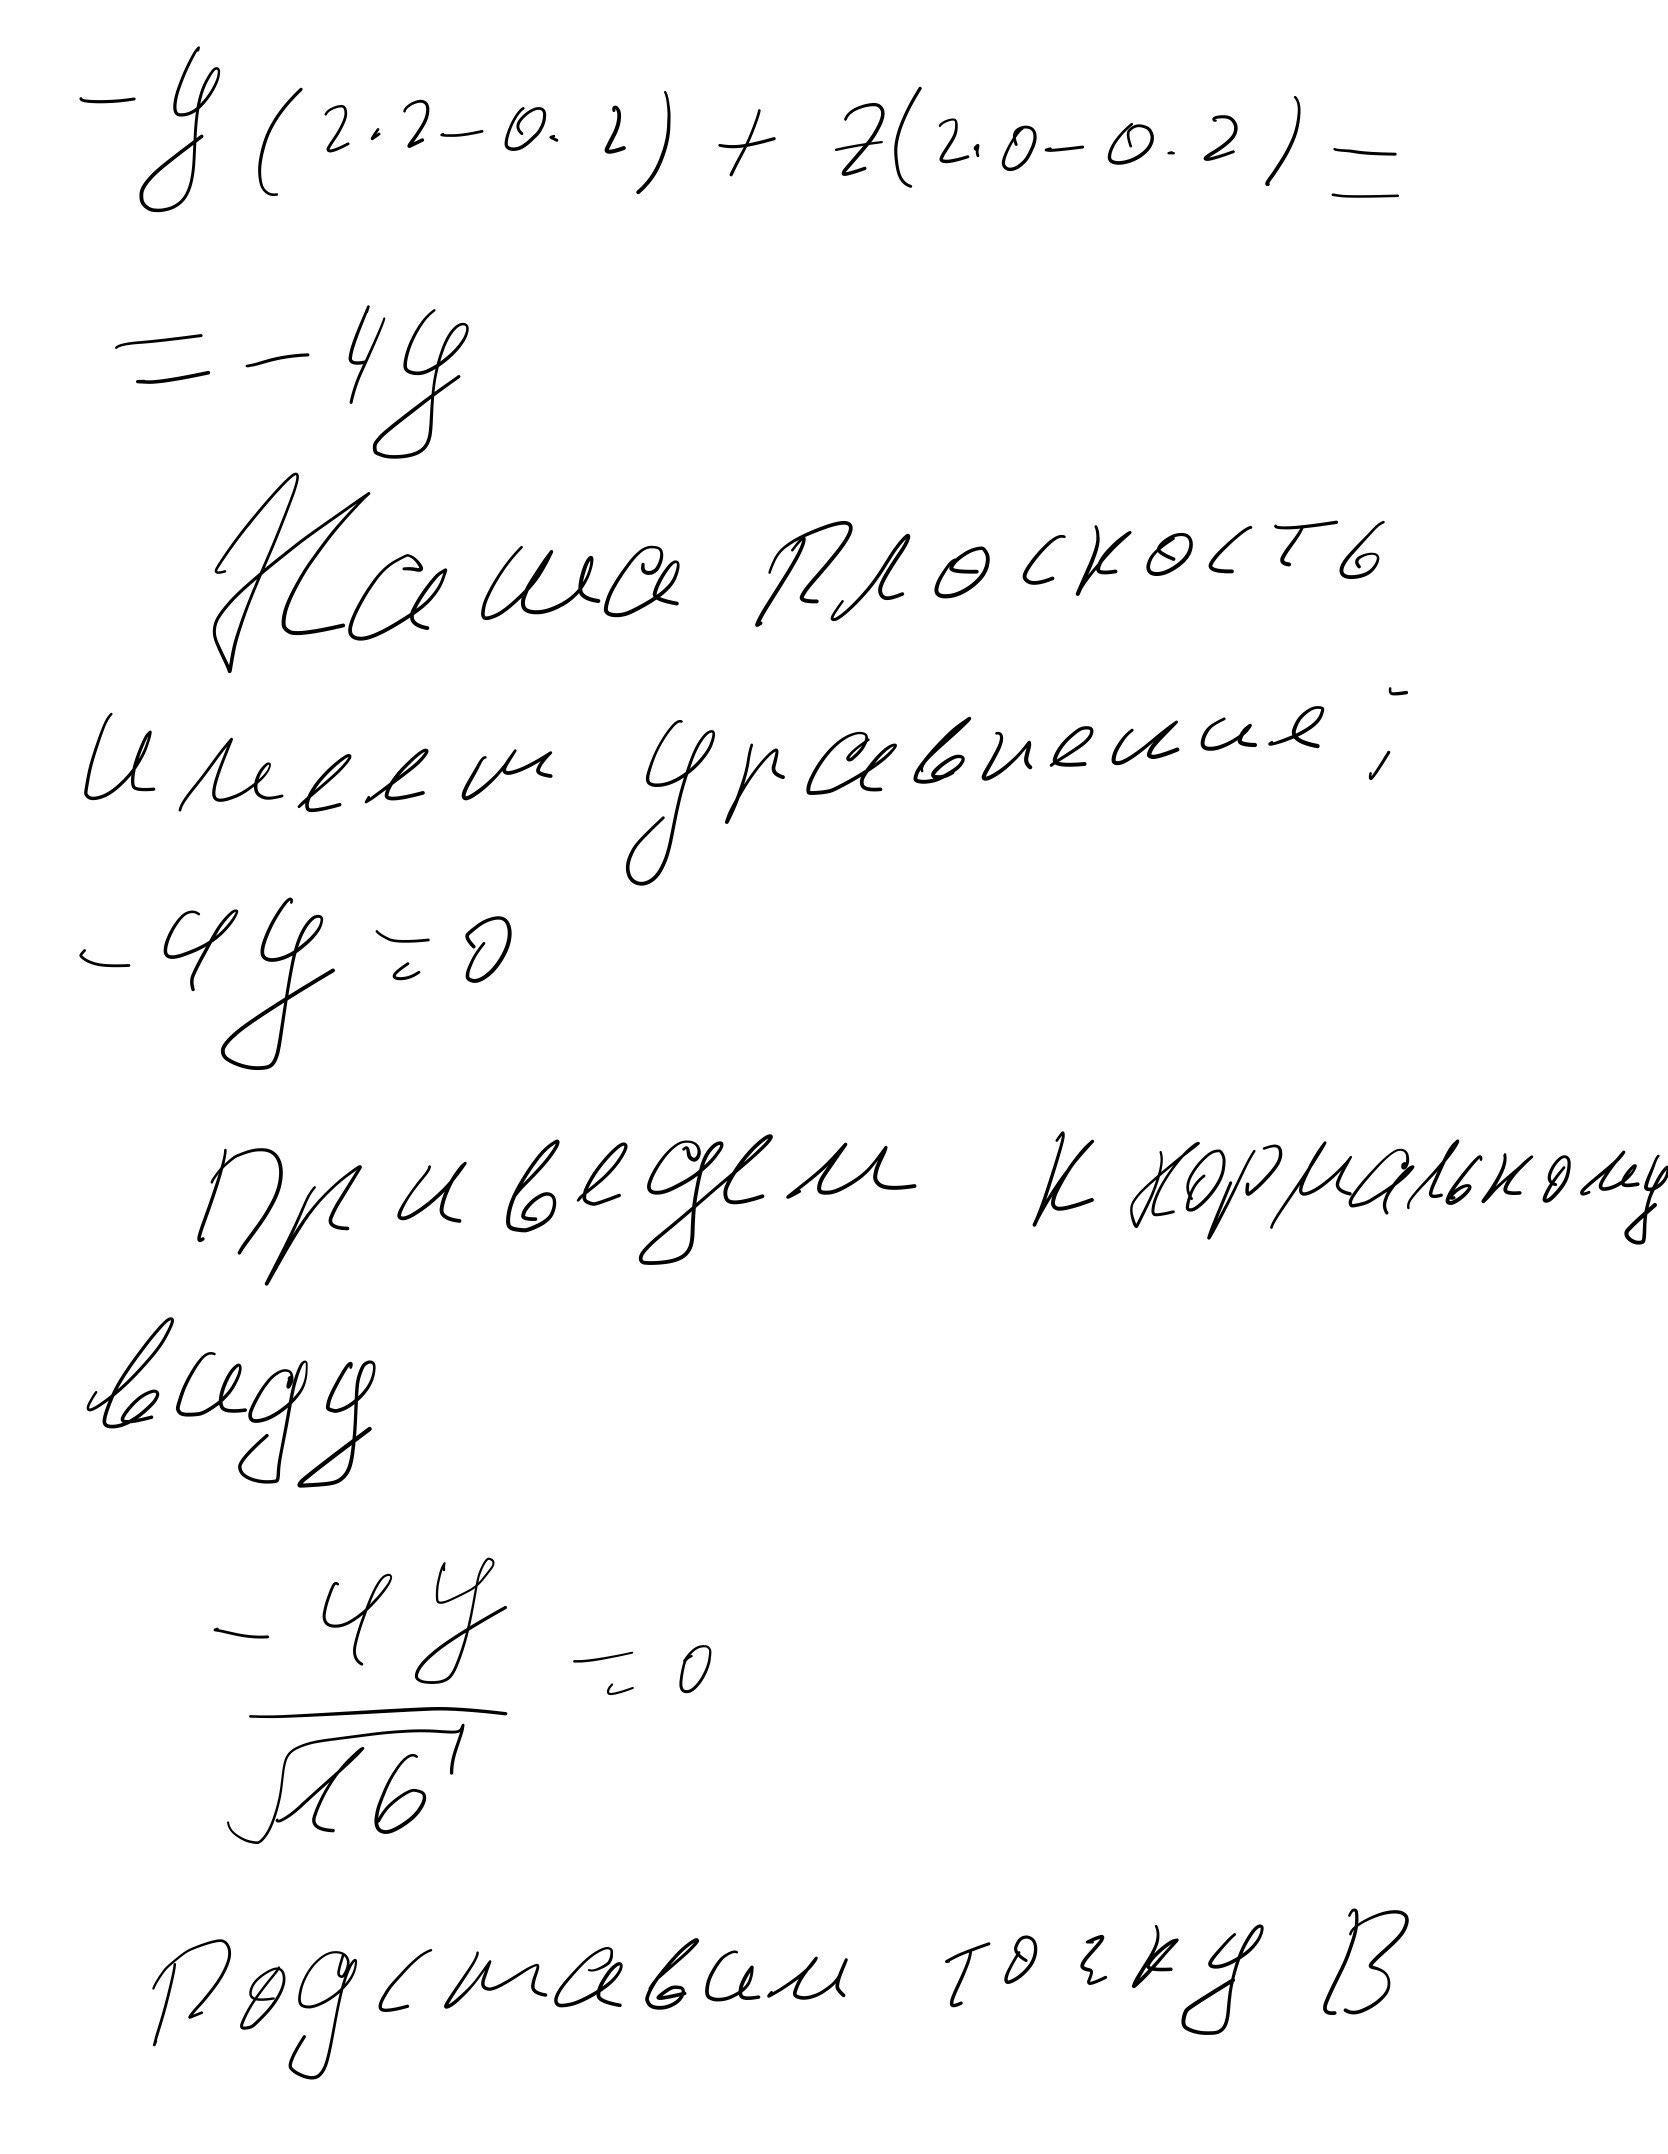 -y(2·2-0·2)+z(2·0-0·2)=
=-4y
Наша плоскость
имеет уравнение:
-4y=0
Приведем к нормальному
виду
-4y/√16=0
Подставим точку B